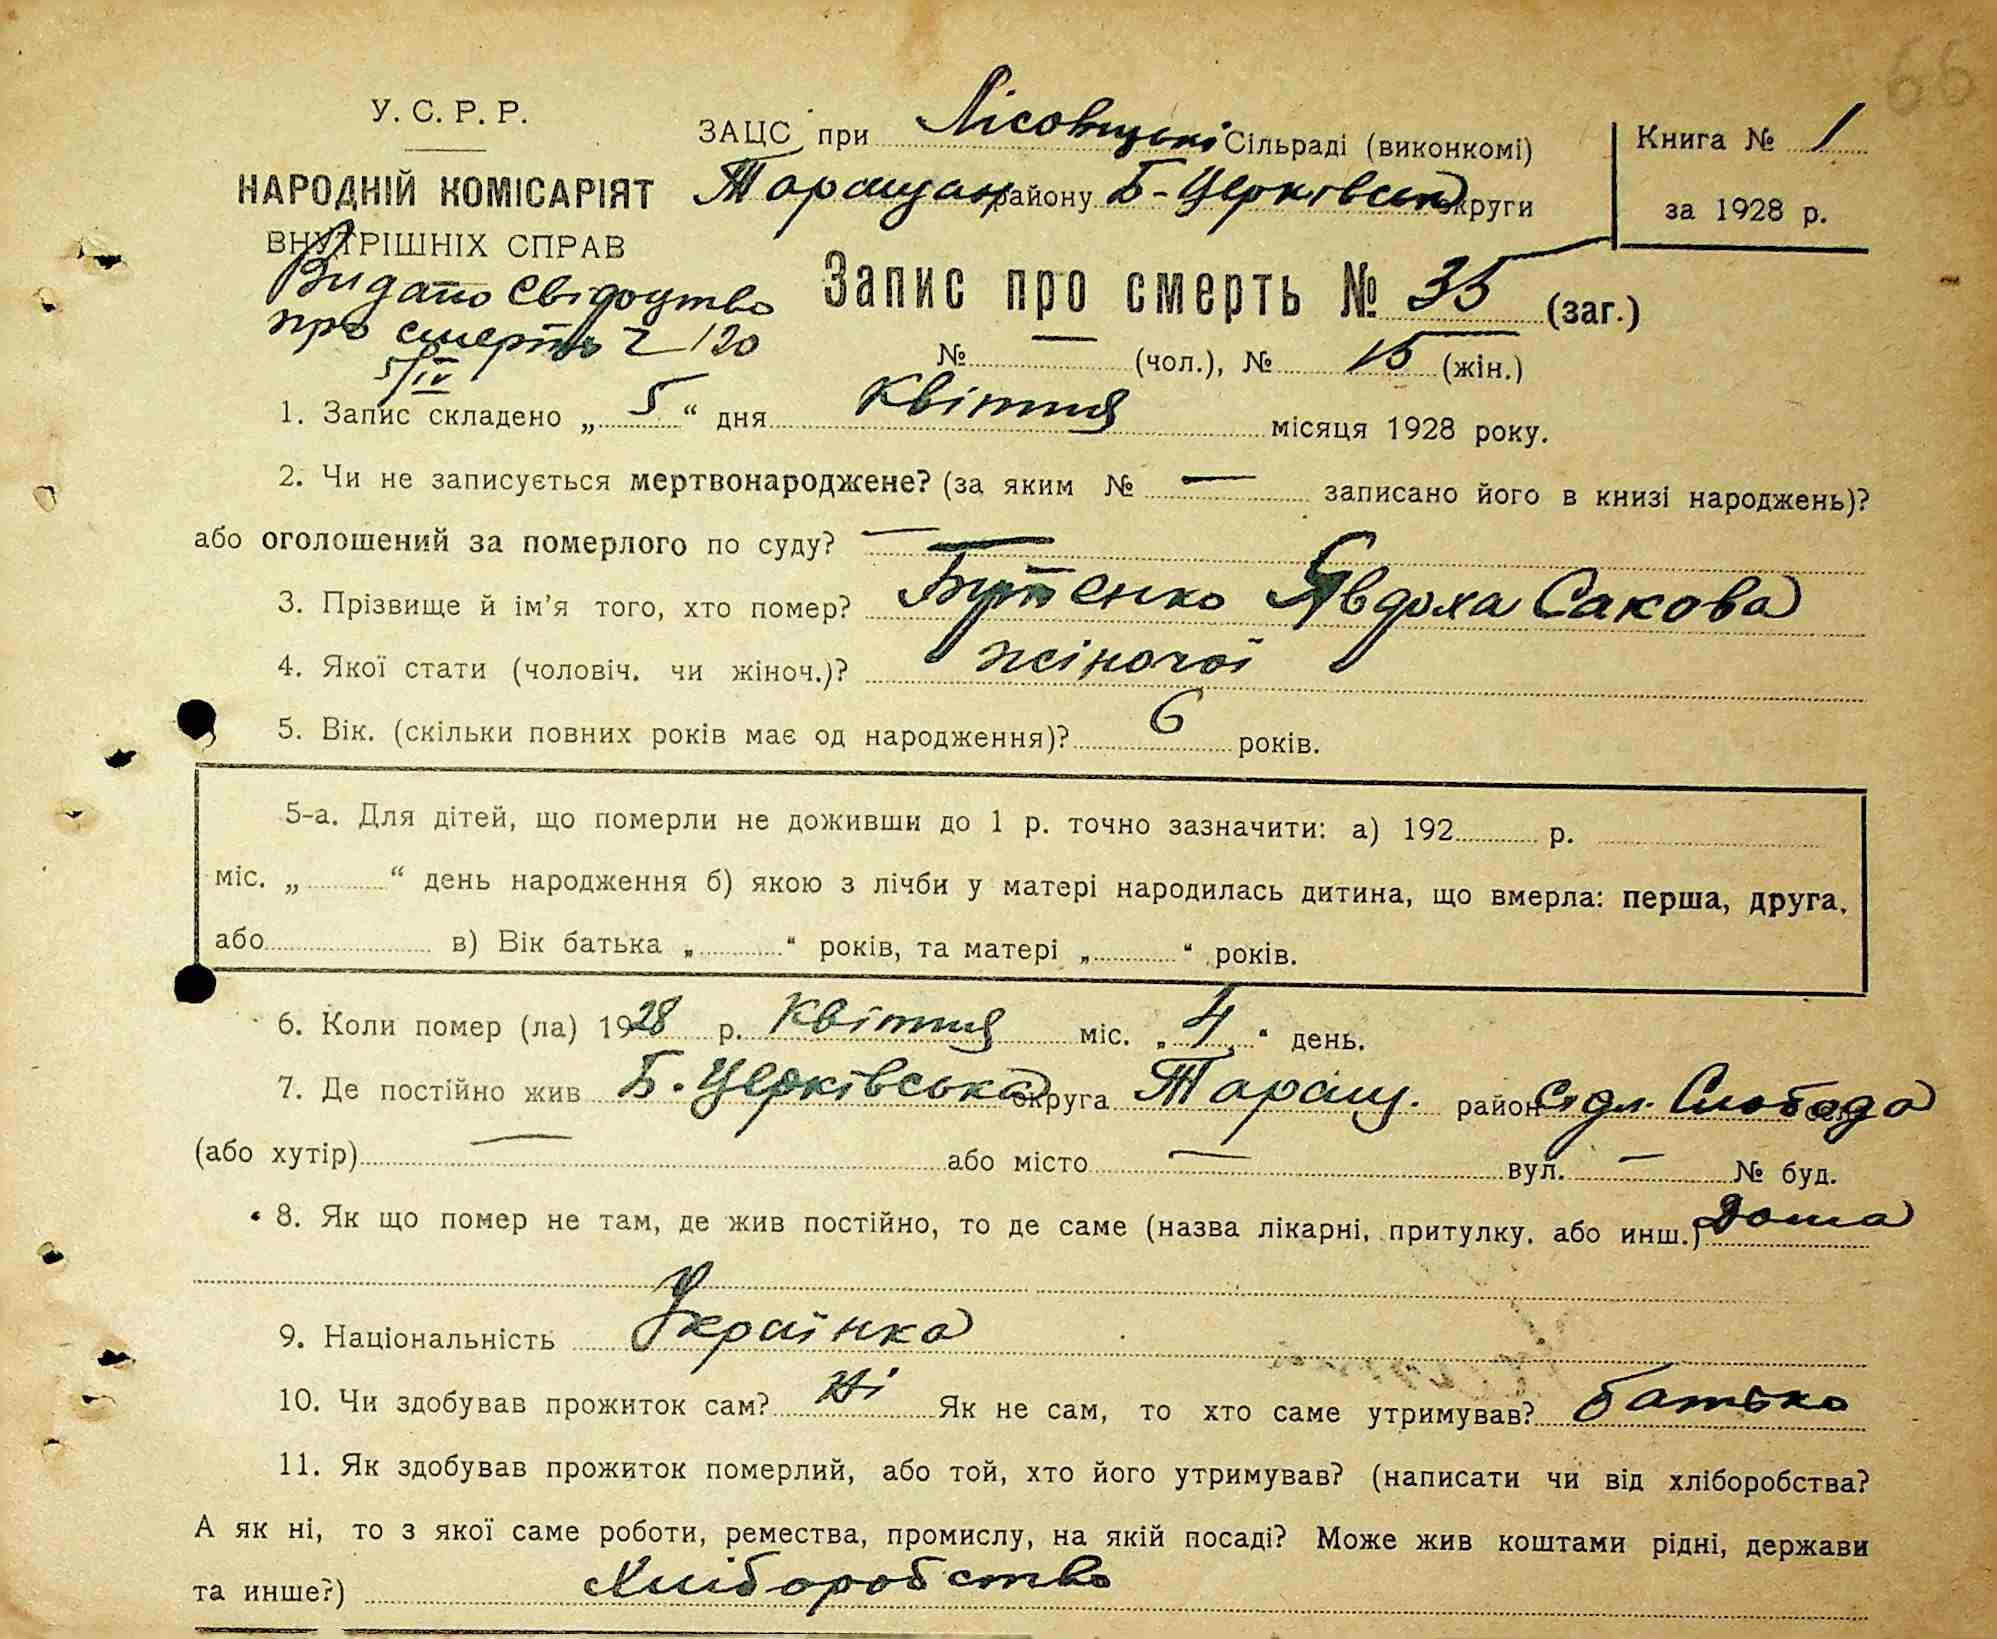 66
У. С. Р. Р.
ЗАЦС при Лісовицькі Сільраді (виконкомі)
Книга № 1
НАРОДНІЙ КОМІСАРІЯТ
Таращан району Б-Церківськ округи
за 1928 р.
ВНУТРІШНІХ СПРАВ
Видано свідоцтво
Запис про смерть № 35 (заг.)
про смерть 120
5/IV
№ — (чол.), № 15 (жін.)
1. Запис складено „ 5 “ дня Квітня місяця 1928 року.
2. Чи не записується мертвонароджене? (за яким № — записано його в книзі народжень)?
або оголошений за померлого по суду? —
3. Прізвище й ім’я того, хто помер? Бутенко Явдоха Сакова
4. Якої стати (чоловіч. чи жіноч.)? жіночої
5. Вік. (скільки повних років має од народження)? 6 років.
5-а. Для дітей, що померли не доживши до 1 р. точно зазначити: а) 192 р.
міс. „ “ день народження б) якою з лічби у матері народилась дитина, що вмерла: перша, друга,
або в) Вік батька „ “ років, та матері „ “ років.
6. Коли помер (ла) 1928 р. Квітня міс. „ 4 “ день.
7. Де постійно жив Б. Церківська округа Таращ. район Слобода
(або хутір) — або місто — вул. — № буд.
8. Як що помер не там, де жив постійно, то де саме (назва лікарні, притулку, або инш.) Дома
9. Національність Українка
10. Чи здобував прожиток сам? Ні Як не сам, то хто саме утримував? батько
11. Як здобував прожиток померлий, або той, хто його утримував? (написати чи від хліборобства?
А як ні, то з якої саме роботи, ремества, промислу, на якій посаді? Може жив коштами рідні, держави
та инше?) Хліборобство